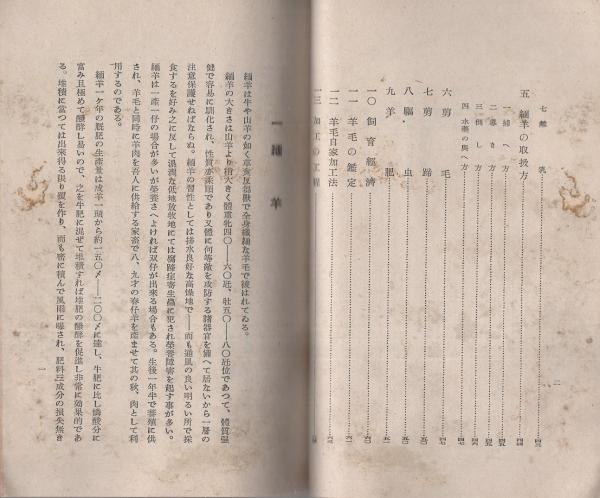 七 離乳
五 緬羊の取扱方
一 捕へ方
二 導き方
三 倒し方
四 水藥の與へ方
六 剪毛
七 剪蹄
八 驅虫
九 羊肥
一〇 飼育經濟
一一 羊毛の鑑定
一二 羊毛自家加工法
一三 加工の工程
二
一 緬羊
緬羊は牛や山羊の如く草食反芻獸で全身纎細な羊毛で被はれてゐる。
緬羊の大きさは山羊より稍大きく體重牝四〇——六〇瓩、牡五〇——八〇瓩位であつて、體質强
健で容易に馴化され、性質亦柔順であり又體に何等敵を攻防する諸器官を備へて居ないから一層の
注意保護せねばならぬ。緬羊の習性としては排水良好な高燥地で——而も通風の良い明るい所で採
食するを好み之に反して濕潤な低地放牧地にては腐蹄症寄生蟲に犯され榮養障害を起す事が多い。
緬羊は一産一仔の場合が多いが榮養さへよければ双仔が出來る場合もある。生後一年半で蕃殖に供
され、羊毛と同時に羊肉を吾人に供給する家畜で八、九才の春仔羊を産ませて其の秋、肉として利
用するのである。
緬羊一ケ年の厩肥の生産量は成羊一頭から約一五〇〆——二〇〇〆に達し、牛肥に比し燐酸分に
富み且極めて醱酵し易いので、之を牛肥に混ぜて堆積すれば堆肥の醱酵を促進し非常に効果的であ
る。堆積に當つては出來得る限り覆を作り、而も密に積んで風雨に曝され、肥料三成分の損失無き
一